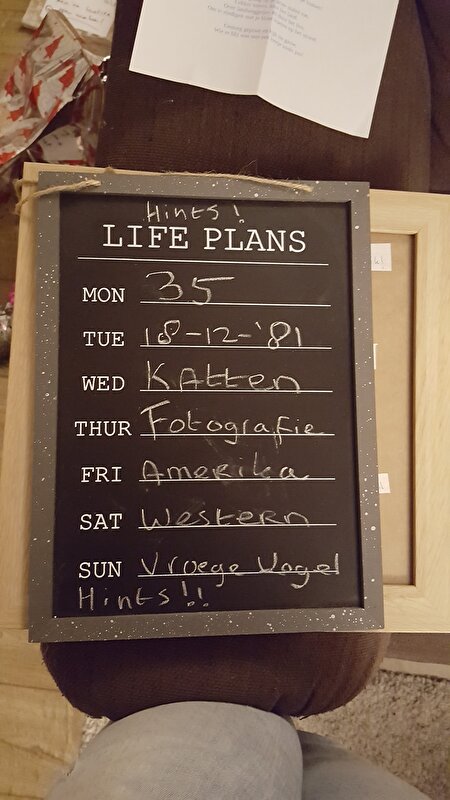 Hints!
LIFE PLANS
MON 35
TUE 18-12-'81
WED Katten
THUR Fotografie
FRI Amerika
SAT Western
SUN Vroege Vogel
Hints!!